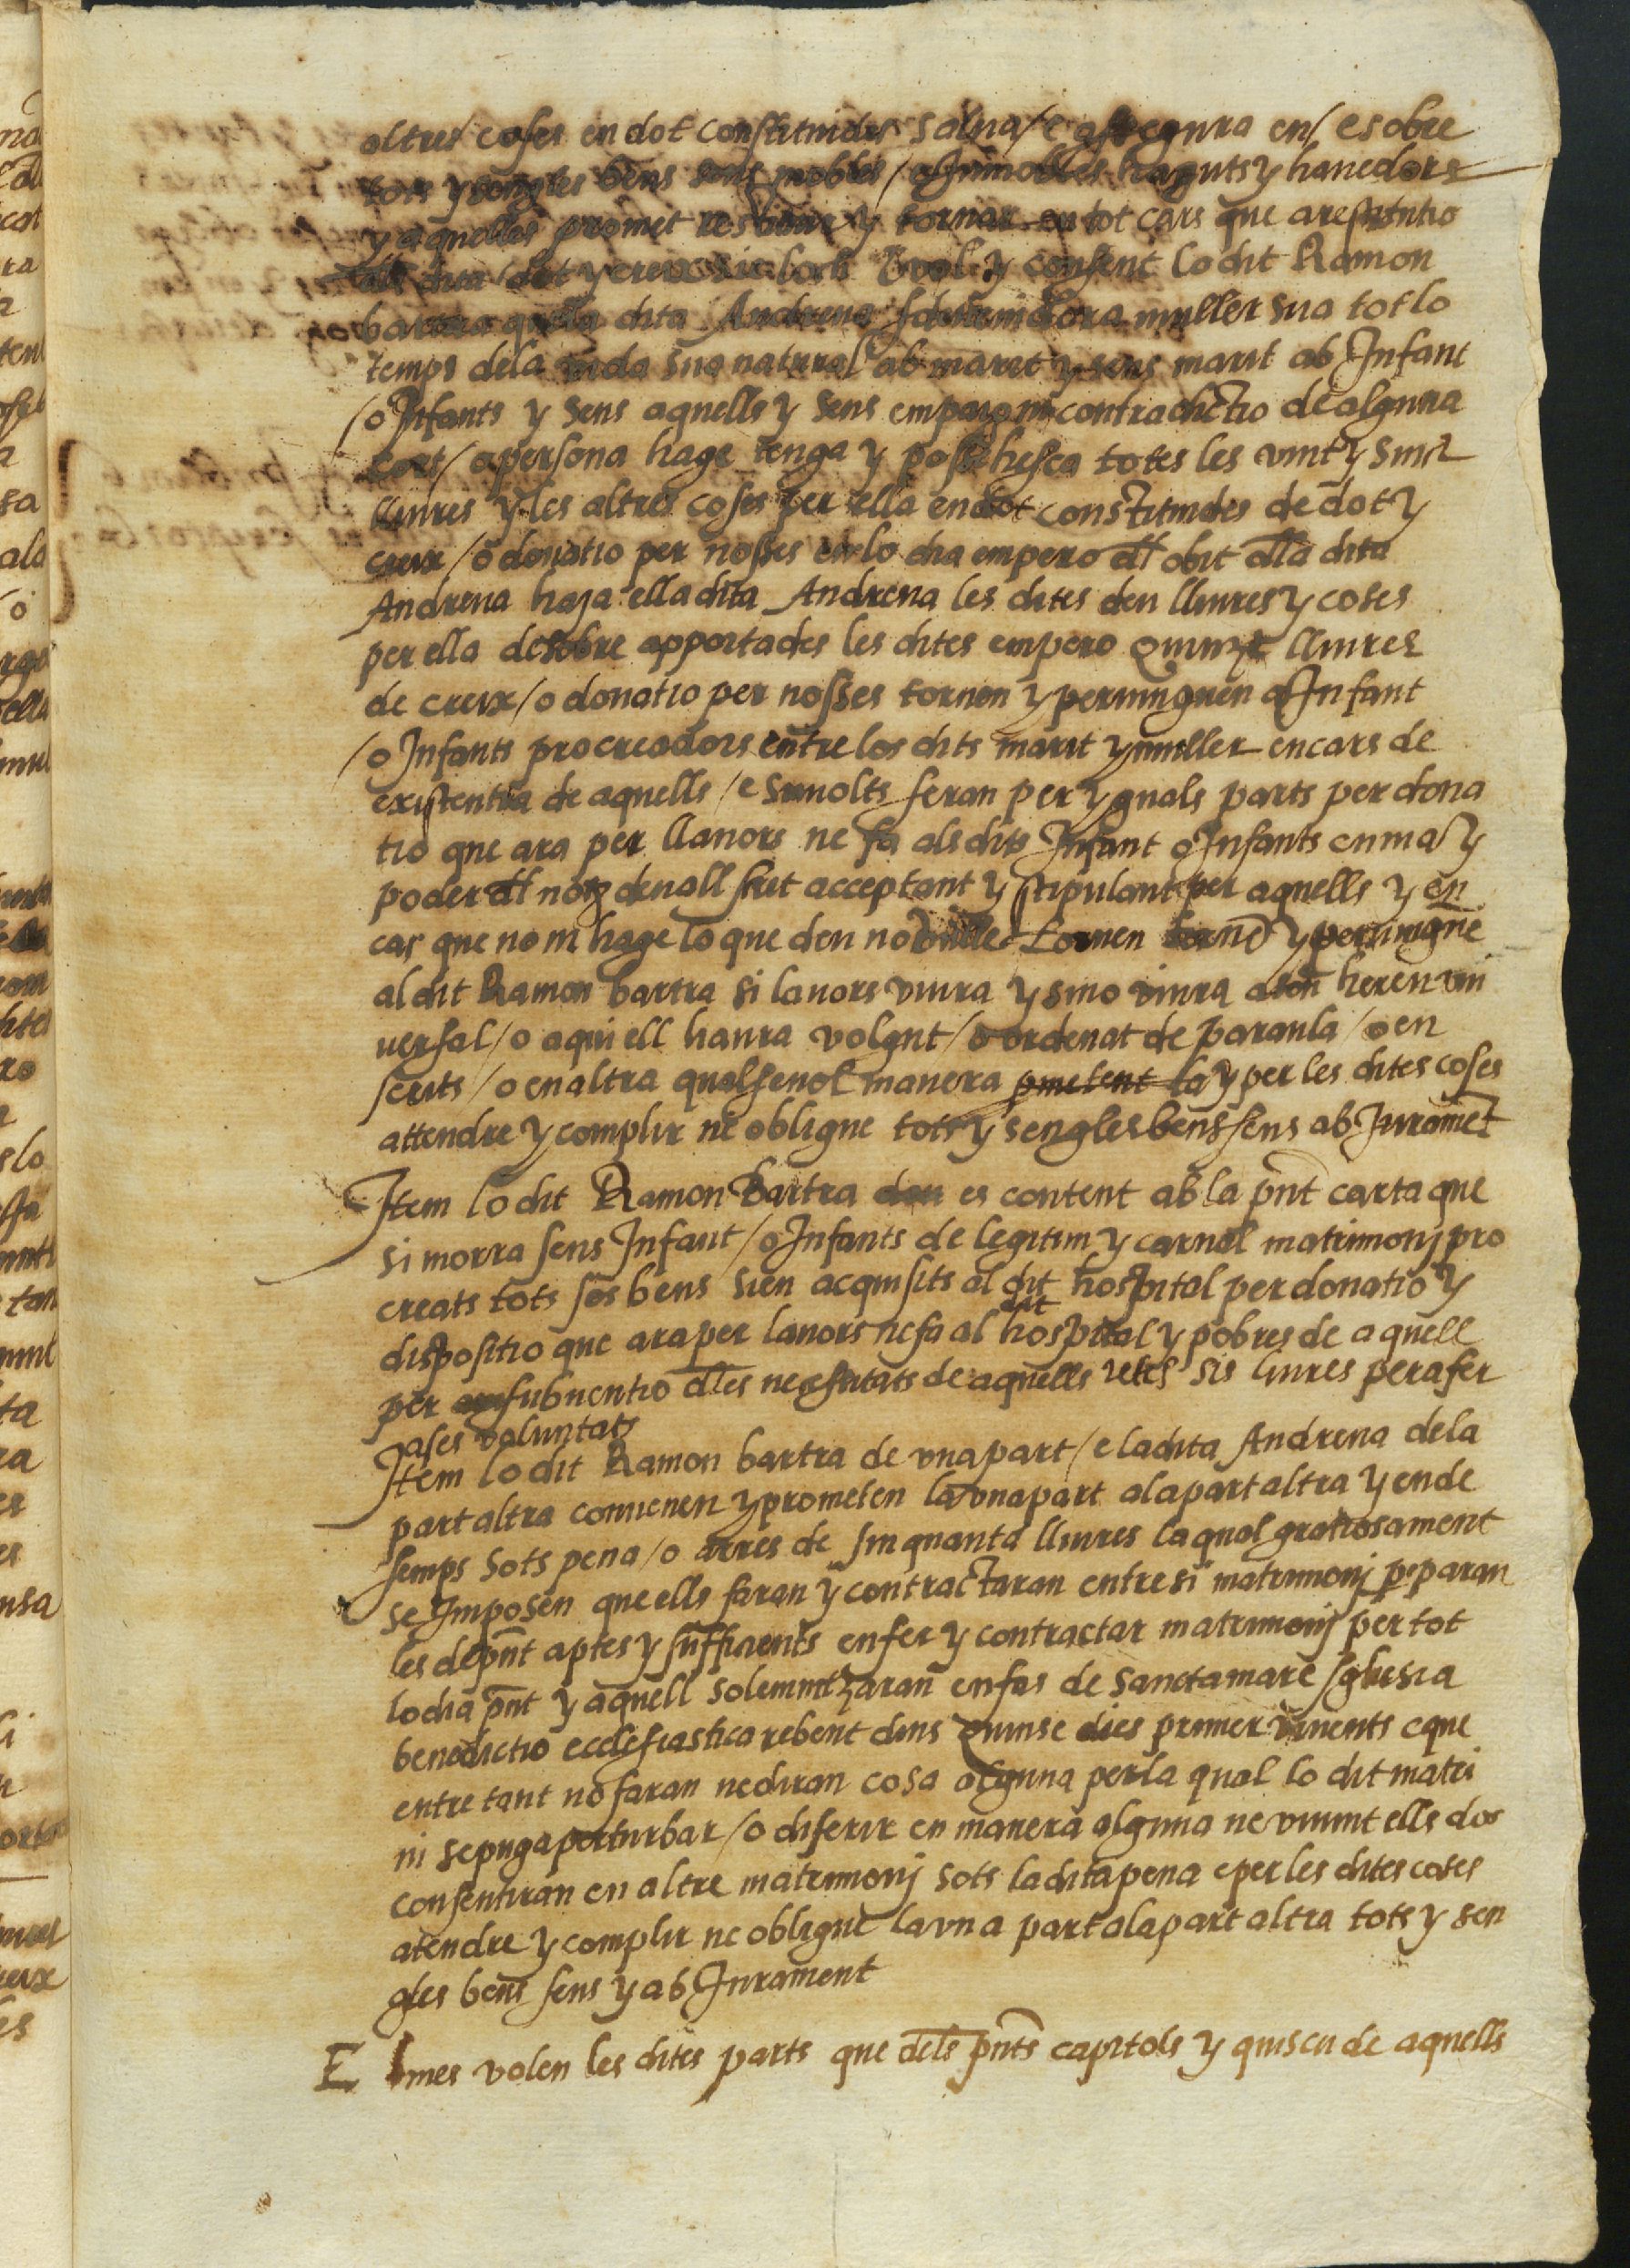 altres coses en dot constituides salva / e assegura en / e sobre
tots y sengles bens seus mobles / o Immobles haguts y havedors
y aquelles promet restituir y tornar en tot cars que a restitutio
dita dot y creix sie loch E vol y consent lo dit Ramon
bartra quella dita Andreua sdevenidora muller sua tot lo
temps dela vida sua natural ab marit y sens marit ab Infant
/ o Infants y sens aquells y sens empaig ni contradictio de alguna
cort / apersona hage tenga y possehesca totes les vint y sinch
lliures y les altres coses per ella endot constituides de dot y
creix / o donatio per nosses en lo dia empero dl obit dlla dita
Andreua haja ella dita Andreua les dites deu lliures y coses
per ella desobre apportades les dites empero quinze lliures
de creix / o donatio per nosses tornen y pervinguen a Infant
/ o Infants procreadors entre los dits marit y muller encars de
existentia de aquells / e si molts seran per yguals parts per dona
tio que ara per llanors ne fa als dits Infant o Infants en ma y
poder dl not devall scrit acceptant y stipulant per aquells y en
cas que no ni hage lo que deu no vulle tornen torne y pervingue
al dit Ramon bartra si lanors viura y sino viura a son hereu uni
versal / o aqui ell haura volgut / o ordenat de paraula / o en
scrits / o en altra qualsevol manera pmetent la y per les dites coses
attendre y complir ne obligue tots y sengles bens seus ab Jurament
Item lo dit Ramon Bartra dau es content ab la pnt carta que
si morra sens Infant / o Infants de legitim y carnal matrimonj pro
creats tots sos bens sien acquisits al dit hospital per donatio y
dispositio que ara per lanors ne fa al dit hospital y pobres de aquell
per subventio dles necessitats de aquells retes sis liures per a fer
a ses voluntats
Item lo dit Ramon bartra de una part / e la dita Andreua dela
part altra convenen y prometen la una part ala part altra y ende
semps sots pena / o arres de sinquanta lliures la qual gratiosament
se Imposen que ells faran y contractaran entre si matrimonj p paran
les de pnt aptes y sufficients enfer y contractar matrimonj per tot
lo dia pnt y aquell solemnizaran enfas de sancta mare sglesia
benedictio ecclesiastica rebent dins quinse dies primer vinents e que
entre tant no faran ne diran cosa alguna per la qual lo dit matri
ni se puga perturbar / o diferir en manera alguna ne vivint ells dos
consentiran en altre matrimonj sots la dita pena e per les dites coses
atendre y complir ne obligue la una part ala part altra tots y sen
gles bens seus y ab Jurament
E mes volen les dites parts que dels pnts capitols y quiscu de aquells